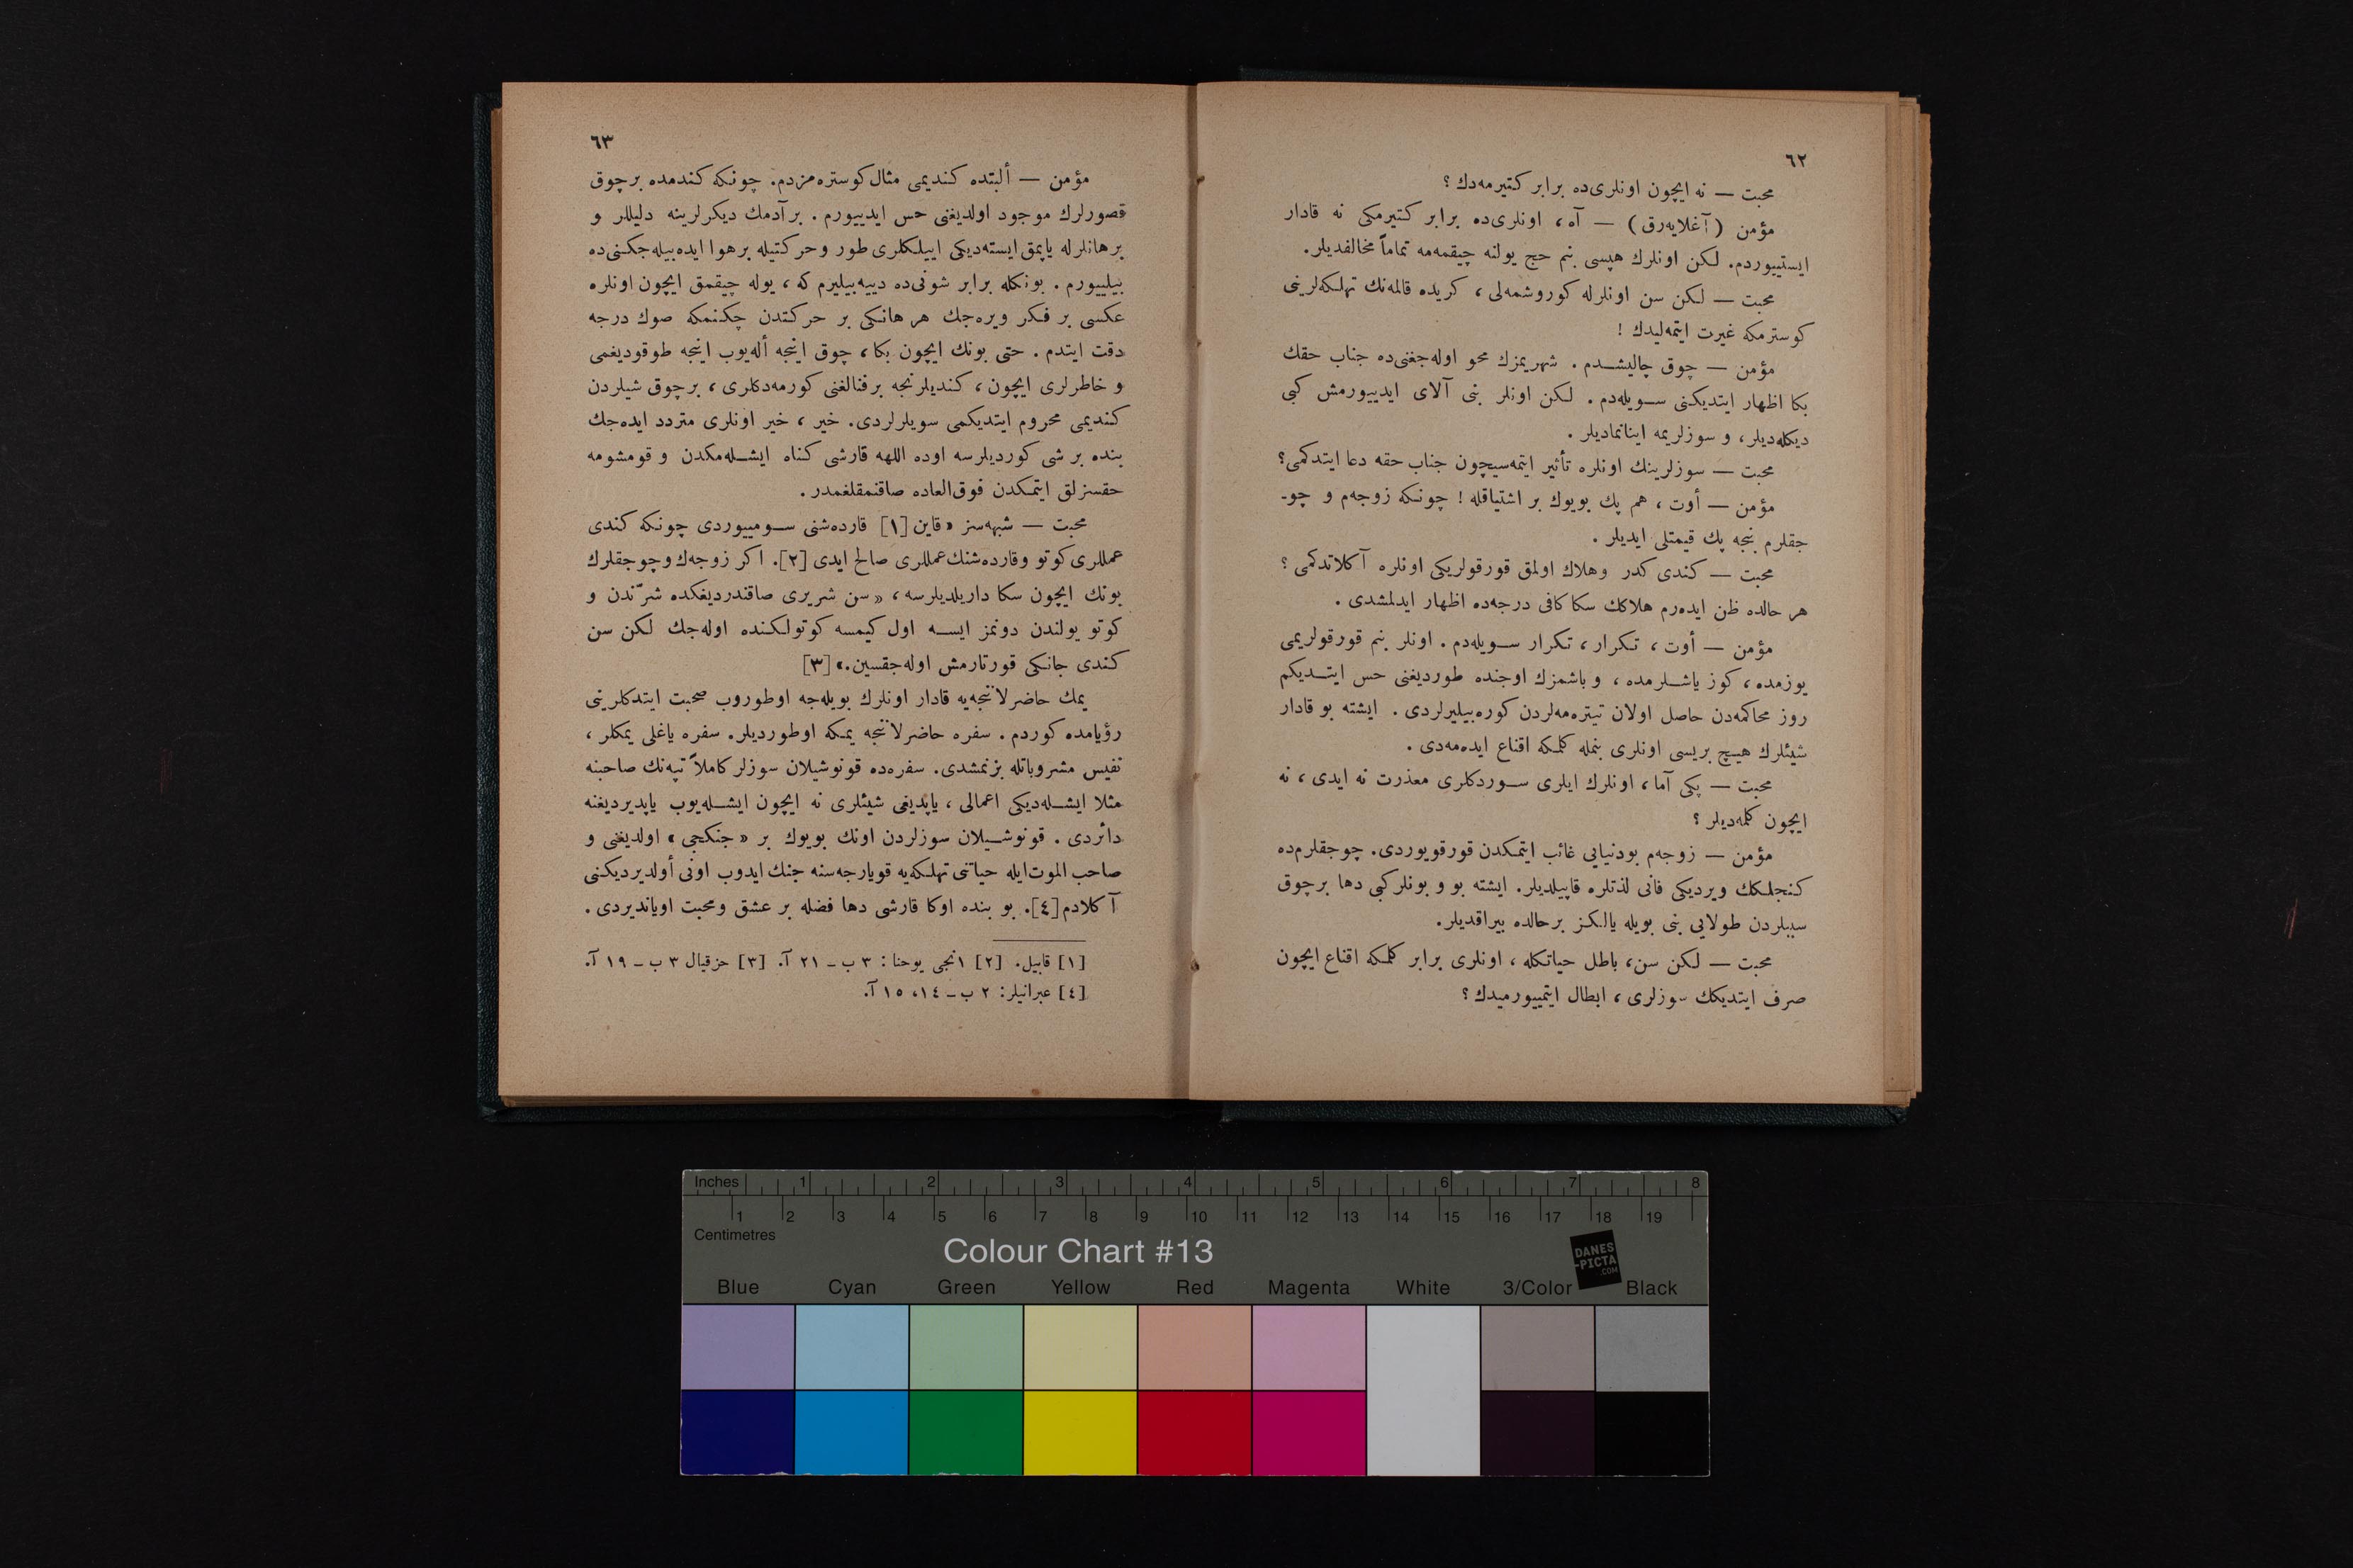 ٦٢
محبت — نه ایچون اونلری‌ده برابر کتیرمه‌دك ؟
مؤمن (آغلایه‌رق) — آه، اونلری‌ده برابر کتیرمکی نه قادار
ایستییوردم. لکن اونلرك هپسی بنم حج یولنه چیقمه‌مه تماماً مخالفدیلر.
محبت — لکن سن اونلرله کوروشمه‌لی، کریده قالمه‌نك تهلکه‌لرینی
کوسترمکه غیرت ایتمه‌لیدك !
مؤمن — چوق چالیشدم . شهریمزك محو اوله‌جغنی‌ده جناب حقك
بکا اظهار ایتدیکنی سویله‌دم . لکن اونلر بنی آلای ایدییورمش کبی
دیکله‌دیلر، و سوزلریمه اینانمادیلر .
محبت — سوزلرینك اونلره تأثیر ایتمه‌سیچون جناب حقه دعا ایتدکمی؟
مؤمن — أوت، هم پك بویوك بر اشتیاقله ! چونکه زوجه‌م و چو-
جقلرم بنجه پك قیمتلی ایدیلر .
محبت — کندی کدر وهلاك اولمق قورقولریکی اونلره آکلاتدکمی ؟
هر حالده ظن ایده‌رم هلاکك سکا کافی درجه‌ده اظهار ایدلمشدی .
مؤمن — أوت، تکرار، تکرار سویله‌دم . اونلر بنم قورقولریمی
یوزمده، کوز یاشلرمده، و باشمزك اوجنده طوردیغنی حس ایتدیکم
روز محاکمه‌دن حاصل اولان تیتره‌مه‌لردن کوره‌بیلیرلردی . ایشته بو قادار
شیئلرك هیچ بریسی اونلری بنمله کلمکه اقناع ایده‌مه‌دی .
محبت — پکی آما، اونلرك ایلری سوردکلری معذرت نه ایدی، نه
ایچون کلمه‌دیلر ؟
مؤمن — زوجه‌م بودنیایی غائب ایتمکدن قورقویوردی. چوجقلرم‌ده
کنجلکك ویردیکی فانی لذتلره قاپیلدیلر. ایشته بو و بونلرکبی دها برچوق
سببلردن طولایی بنی بویله یالکز برحالده بیراقدیلر.
محبت — لکن سن، باطل حیاتکله، اونلری برابر کلمکه اقناع ایچون
صرف ایتدیکك سوزلری، ابطال ایتمییورمیدك ؟
٦٣
مؤمن — ألبتده کندیمی مثال کوستره‌مزدم. چونکه کندمده برچوق
قصورلرك موجود اولدیغنی حس ایدییورم . برآدمك دیکرلرینه دلیللر و
برهانلرله یاپمق ایسته‌دیکی اییلکلری طور وحرکتیله برهوا ایده‌بیله‌جکنی‌ده
بیلییورم . بونکله برابر شونی‌ده دییه‌بیلیرم که، یوله چیقمق ایچون اونلره
عکسی بر فکر ویره‌جك هر هانکی بر حرکتدن چکنمکه صوك درجه
دقت ایتدم . حتی بونك ایچون بکا، چوق اینجه أله‌یوب اینجه طوقودیغمی
و خاطرلری ایچون، کندیلرنجه برفنالغنی کورمه‌دکلری، برچوق شیلردن
کندیمی محروم ایتدیکمی سویلرلردی. خیر، خیر اونلری متردد ایده‌جك
بنده بر شی کوردیلرسه اوده اللهه قارشی کناه ایشله‌مکدن و قومشومه
حقسزلق ایتمکدن فوق‌العاده صاقنمقلغمدر .
محبت — شبهه‌سز «قاین [١] قارده‌شنی سومییوردی چونکه کندی
عمللری کوتو وقارده‌شنك عمللری صالح ایدی [٢]. اکر زوجه‌ك وچوجقلرك
بونك ایچون سکا داریلدیلرسه، «سن شریری صاقندردیغکده شرّندن و
کوتو یولندن دونمز ایسه اول کیمسه کوتولکنده اوله‌جك لکن سن
کندی جانکی قورتارمش اوله‌جقسین.» [٣]
یمك حاضرلاننجه‌یه قادار اونلرك بویله‌جه اوطوروب صحبت ایتدکلرینی
رؤیامده کوردم . سفره حاضرلاننجه یمکه اوطوردیلر. سفره یاغلی یمکلر،
نفیس مشروباتله بزنمشدی. سفره‌ده قونوشیلان سوزلر کاملاً تپه‌نك صاحبنه
مثلا ایشله‌دیکی اعمالی، یاپدیغی شیئلری نه ایچون ایشله‌یوب یاپدیردیغنه
دائردی . قونوشیلان سوزلردن اونك بویوك بر «جنکجی» اولدیغنی و
صاحب الموت‌ایله حیاتنی تهلکه‌یه قویارجه‌سنه جنك ایدوب اونی أولدیردیکنی
آکلادم[٤]. بو بنده اوکا قارشی دها فضله بر عشق ومحبت اویاندیردی .
[١] قابیل. [٢] ١نجی یوحنا : ٣ ب - ٢١ آ. [٣] حزقیال ٣ ب - ١٩ آ.
[٤] عبرانیلر: ٢ ب - ١٤، ١٥ آ.
Inches 1 2 3 4 5 6 7 8
1 2 3 4 5 6 7 8 9 10 11 12 13 14 15 16 17 18 19
Centimetres
Colour Chart #13
DANES
-PICTA
.COM
Blue Cyan Green Yellow Red Magenta White 3/Color Black